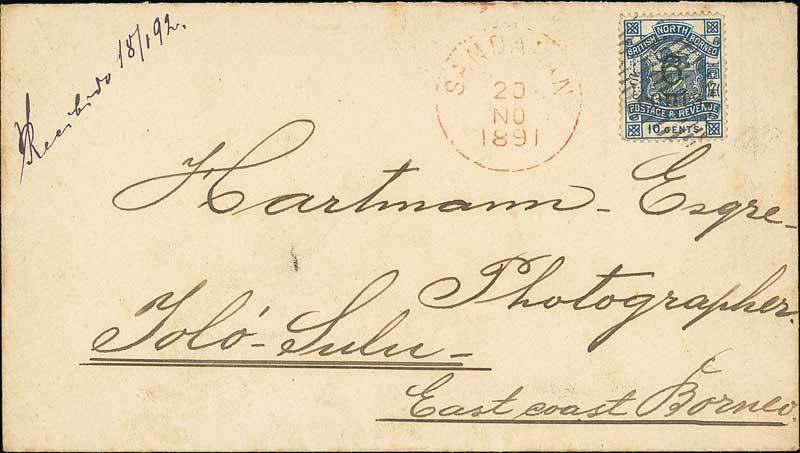 Recibido 18/1 92.
SANDAKAN
20
NO
1891
BRITISH NORTH BORNEO
POSTAGE & REVENUE
10 CENTS
Hartmann - Esqre-
Photographer.
Joló - Sulu -
East coast Borneo.